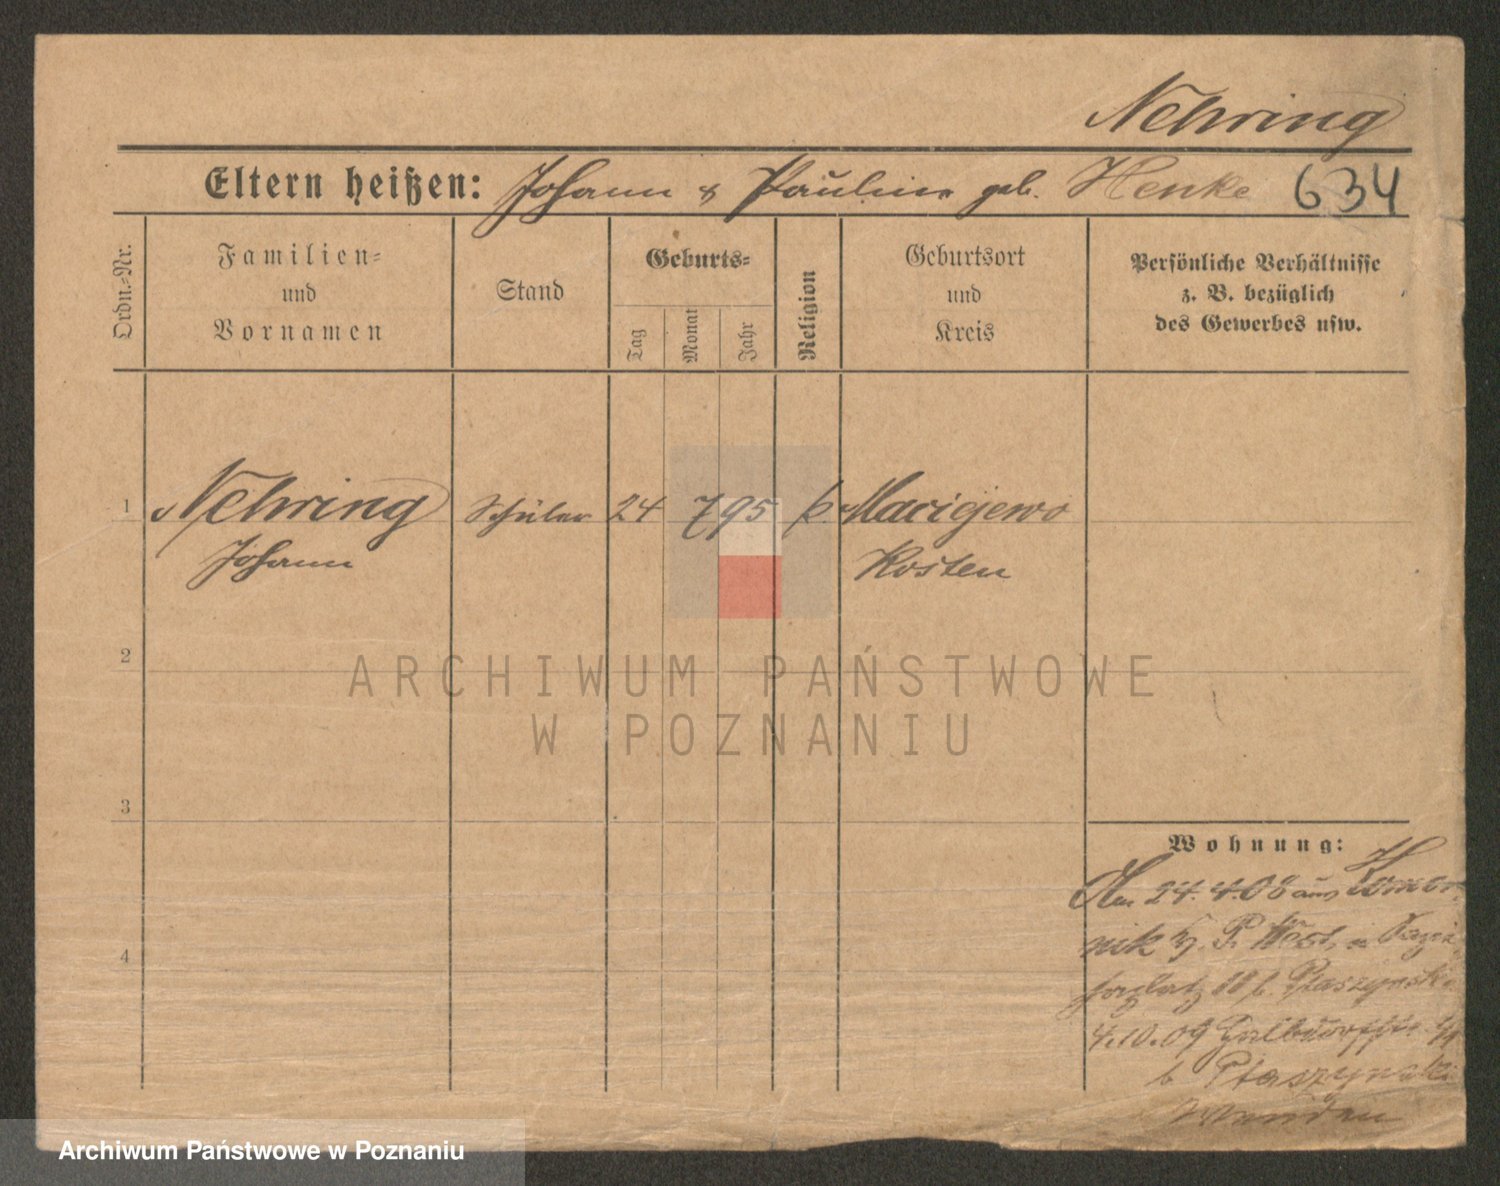 Nehring
Eltern heißen: Johann & Pauline geb. Henke 634
Ordn.-Nr.
Familien-
und
Vornamen
Stand
Geburts-
Tag
Monat
Jahr
Religion
Geburtsort
und
Kreis
Persönliche Verhältnisse
z. B. bezüglich
des Gewerbes usw.
1 Nehring Schüler 24 7 95 k. Maciejewo
Johann Kosten
2
ARCHIWUM PAŃSTWOWE
W POZNANIU
3
Wohnung:
Am 24.4.08 aus Komor-
nik Kr. P. West,
11 b. Ptaszynski
4.10.09
b Ptaszynski
Archiwum Państwowe w Poznaniu